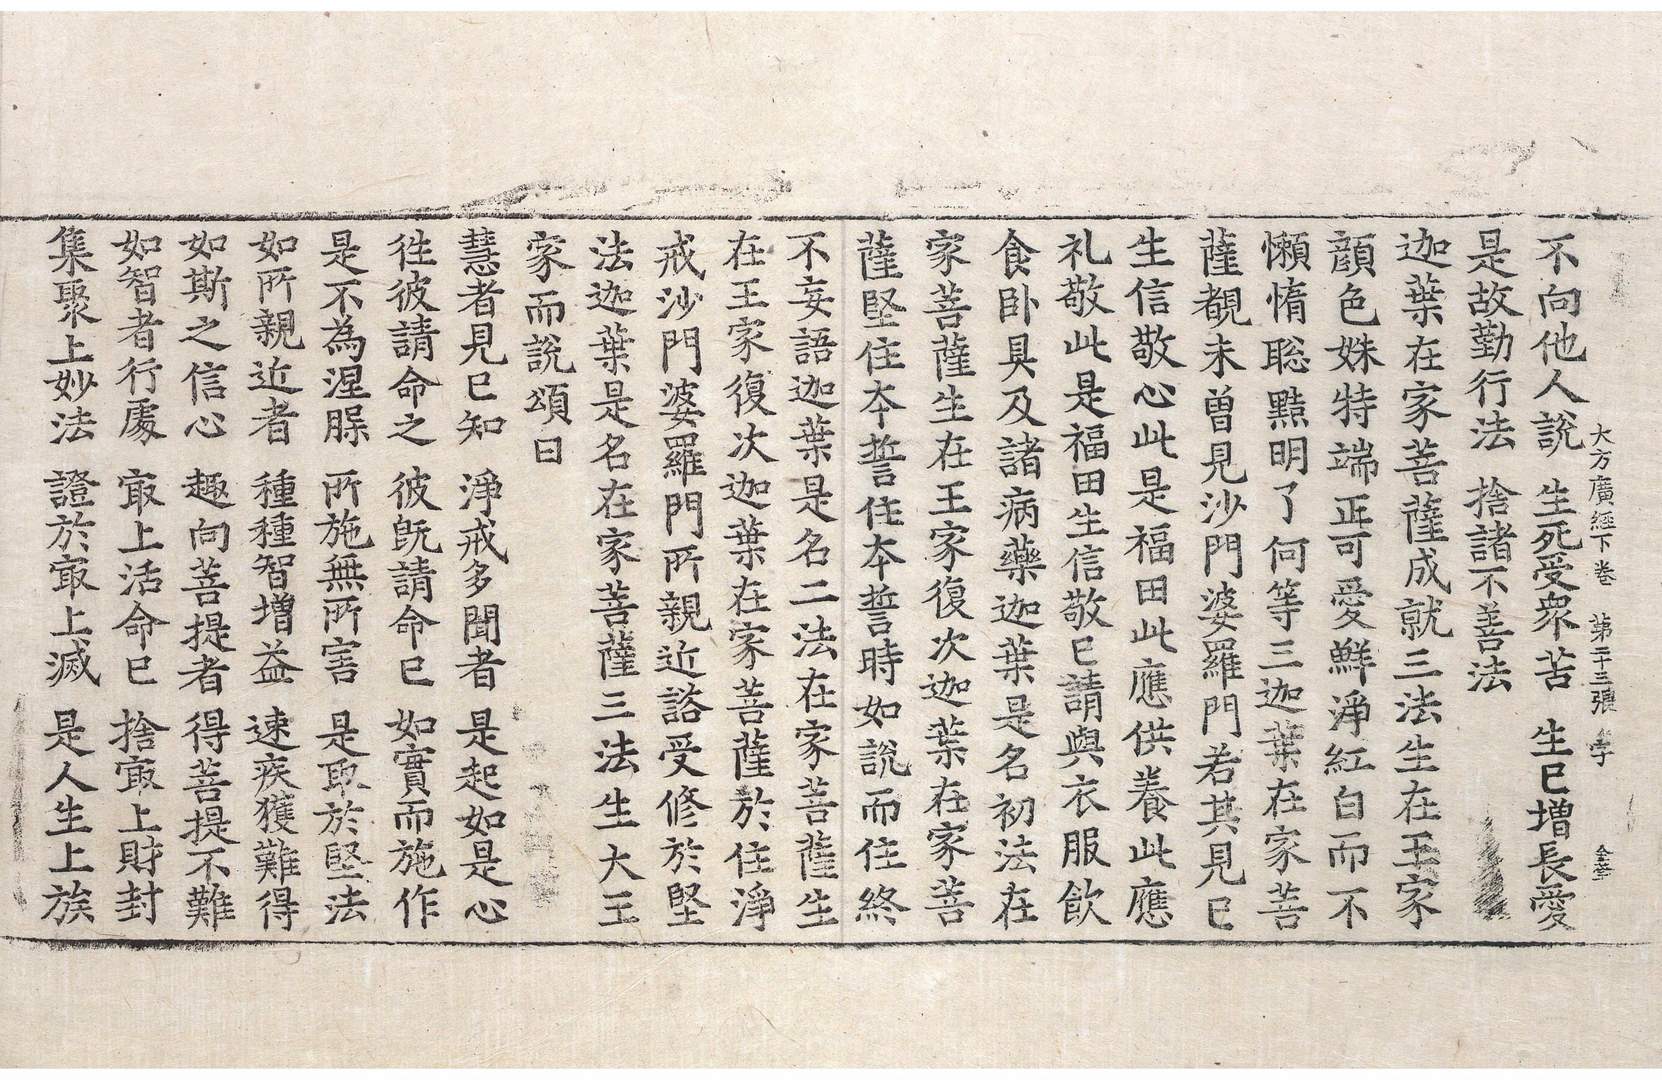 大方廣經下卷 第二十三張 字
不向他人說 生死受衆苦 生已增長愛
是故勤行法 捨諸不善法
迦葉在家菩薩成就三法生在王家
顔色姝特端正可愛鮮淨紅白而不
懶惰聡黠明了何等三迦葉在家菩
薩覩未曽見沙門婆羅門若其見已
生信敬心此是福田此應供養此應
礼敬此是福田生信敬已請與衣服飲
食卧具及諸病藥迦葉是名初法在
家菩薩生在王家復次迦葉在家菩
薩堅住夲誓住夲誓時如說而住終
不妄語迦葉是名二法在家菩薩生
在王家復次迦葉在家菩薩於住淨
戒沙門婆羅門所親近諮受修於堅
法迦葉是名在家菩薩三法生大王
家而說頌曰
慧者見已知 淨戒多聞者 是起如是心
徃彼請命之 彼旣請命已 如實而施作
是不為涅 所施無所害 是取於堅法
如所親近者 種種智增益 速疾獲難得
如斯之信心 趣向菩提者 得菩提不難
如智者行處 㝡上活命已 捨㝡上財封
集聚上妙法 證於㝡上滅 是人生上族